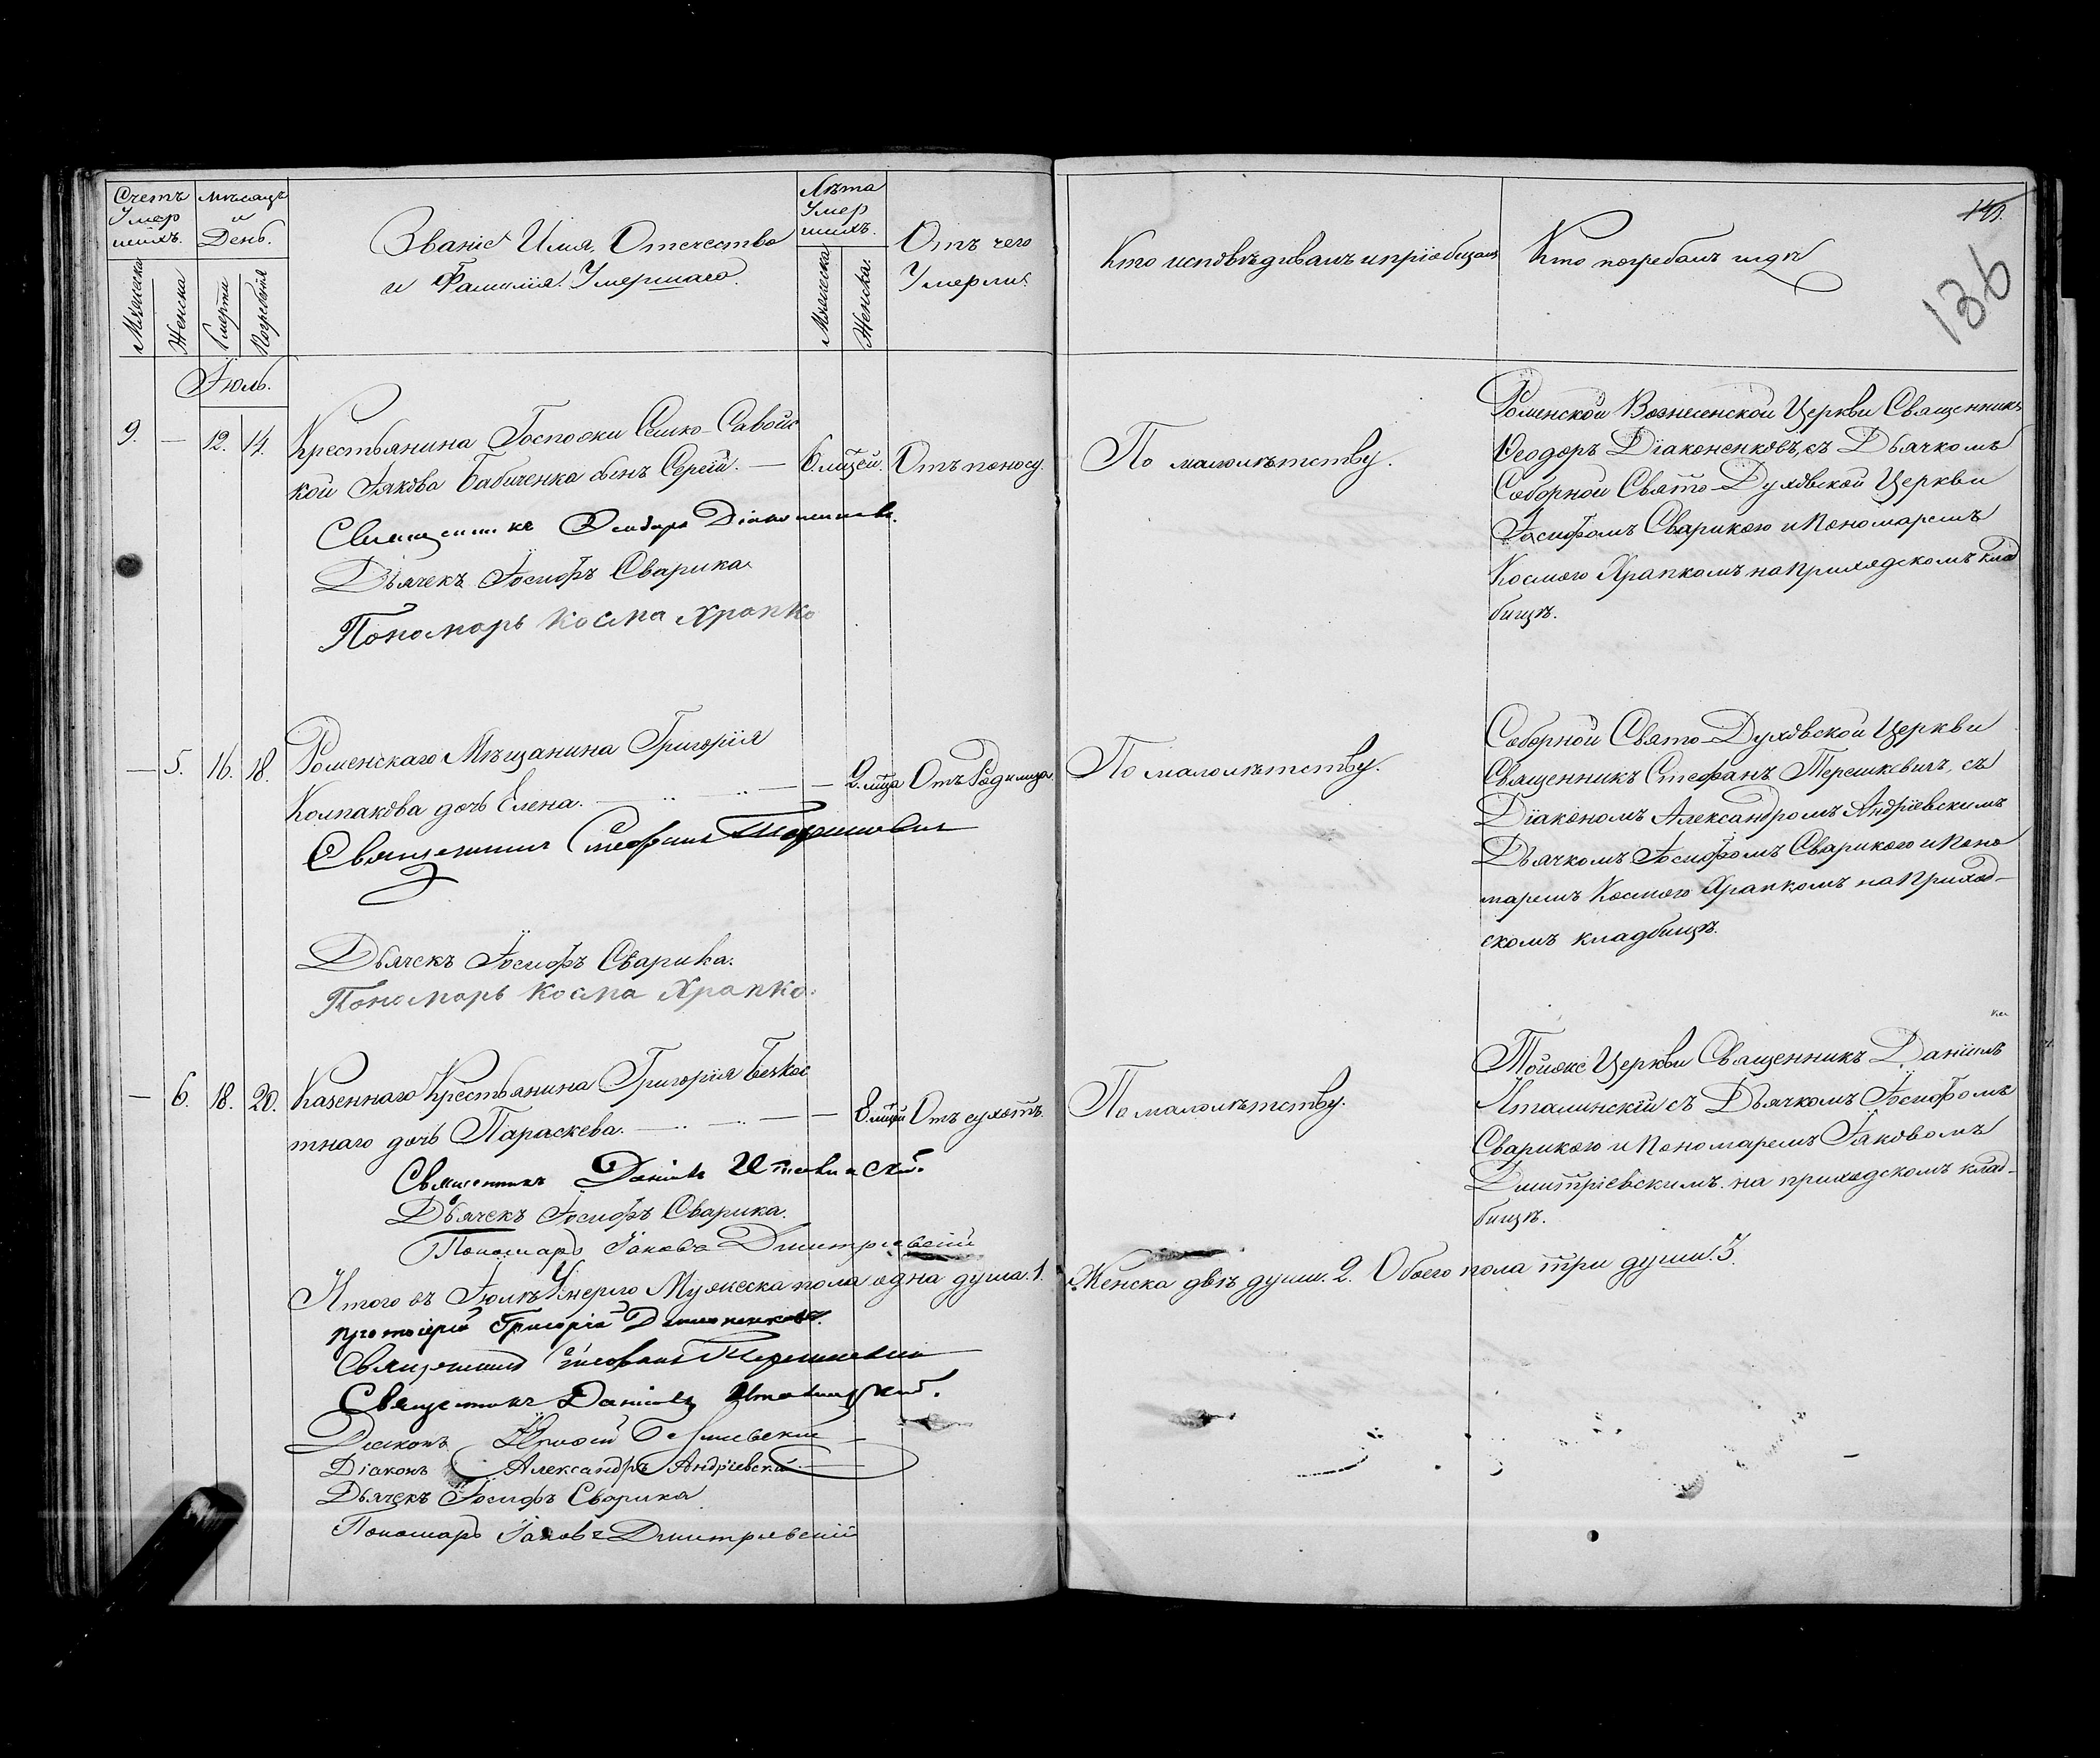 Счетъ
Умер
шихъ.
Мѣсяцъ
и
День.
Званіе Имя, Отечество
и Фамилія Умершаго.
Лѣта
Умер
шихъ.
Отъ чего
Умерли
Кто исповѣдывалъ и пріобщалъ
Кто погребалъ и гдѣ
136
Мужеска
Женска
Смерти
Погребенія
Мужеска
Женска.
Іюль.
9. — 12. 14. Крестьянина Госпожи Сешко-Савойс
кой Іякова Бабиченка сынъ Сергій. — 6. мцей. Отъ поносу.
По малолѣтству.
Роменской Вознесенской Церкви Священникъ
Ѳеодоръ Діаконенковъ, съ Дьячкомъ
Соборной Свято-Духовской Церкви
Іосифомъ Сварикою и Пономаремъ
Космою Храпкомъ на приходскомъ клад
бищѣ.
Священникъ Ѳеодоръ Діаконенковъ.
Дьячекъ Іосифъ Сварика
Пономарь Косма Храпко
— 5. 16. 18. Роменскаго Мѣщанина Григорія
Колпакова дочь Елена. — 2. мца Отъ Родимца
По малолѣтству.
Соборной Свято-Духовской Церкви
Священникъ Стефанъ Терешкевичъ, съ
Діакономъ Александромъ Андріевскимъ
Дьячкомъ Іосифомъ Сварикою и Поно
маремъ Космою Храпкомъ на Приход-
скомъ кладбищѣ.
Священникъ Стефанъ Терешкевичъ
Дьячекъ Іосифъ Сварика.
Пономарь Косма Храпко.
— 6. 18. 20. Казеннаго Крестьянина Григорія Безкос
тнаго дочь Параскева. — 8 мцей Отъ сухотъ.
По малолѣтству.
Тойже Церкви Священникъ Даніилъ
Италинскій съ Дьячкомъ Іосифомъ
Сварикою и Пономаремъ Іяковомъ
Дмитріевскимъ на приходскомъ клад-
бищѣ.
Священникъ Даніилъ Италинскій.
Дьячекъ Іосифъ Сварика.
Пономарь Іаковъ Дмитріевскій
Итого въ Іюлѣ Умерло Мужеска пола одна душа. 1. Женска двѣ души. 2. Обоего пола три души. 3.
Протоіерей Григорій Діаконенковъ.
Священникъ Стефанъ Терешкевичъ
Священникъ Даніилъ Италинскій.
Діаконъ
Діаконъ Александръ Андріевскій
Дьячекъ Іосифъ Сварика
Пономарь Іаковъ Дмитріевскій